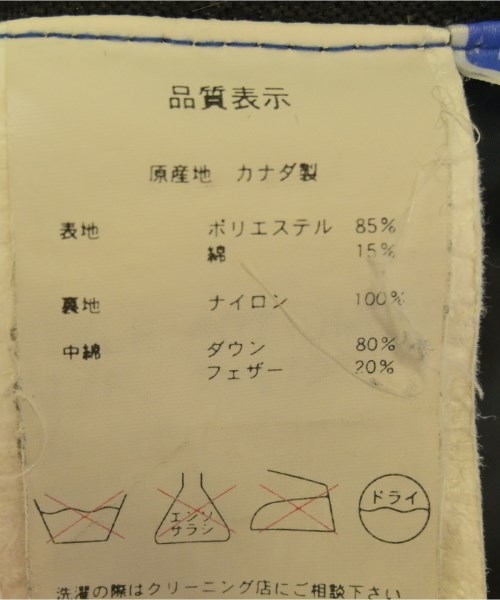 品質表示
原産地 カナダ製
表地 ポリエステル 85%
綿 15%
裏地 ナイロン 100%
中綿 ダウン 80%
フェザー 20%
エンソ
サラシ
ドライ
洗濯の際はクリーニング店にご相談下さい